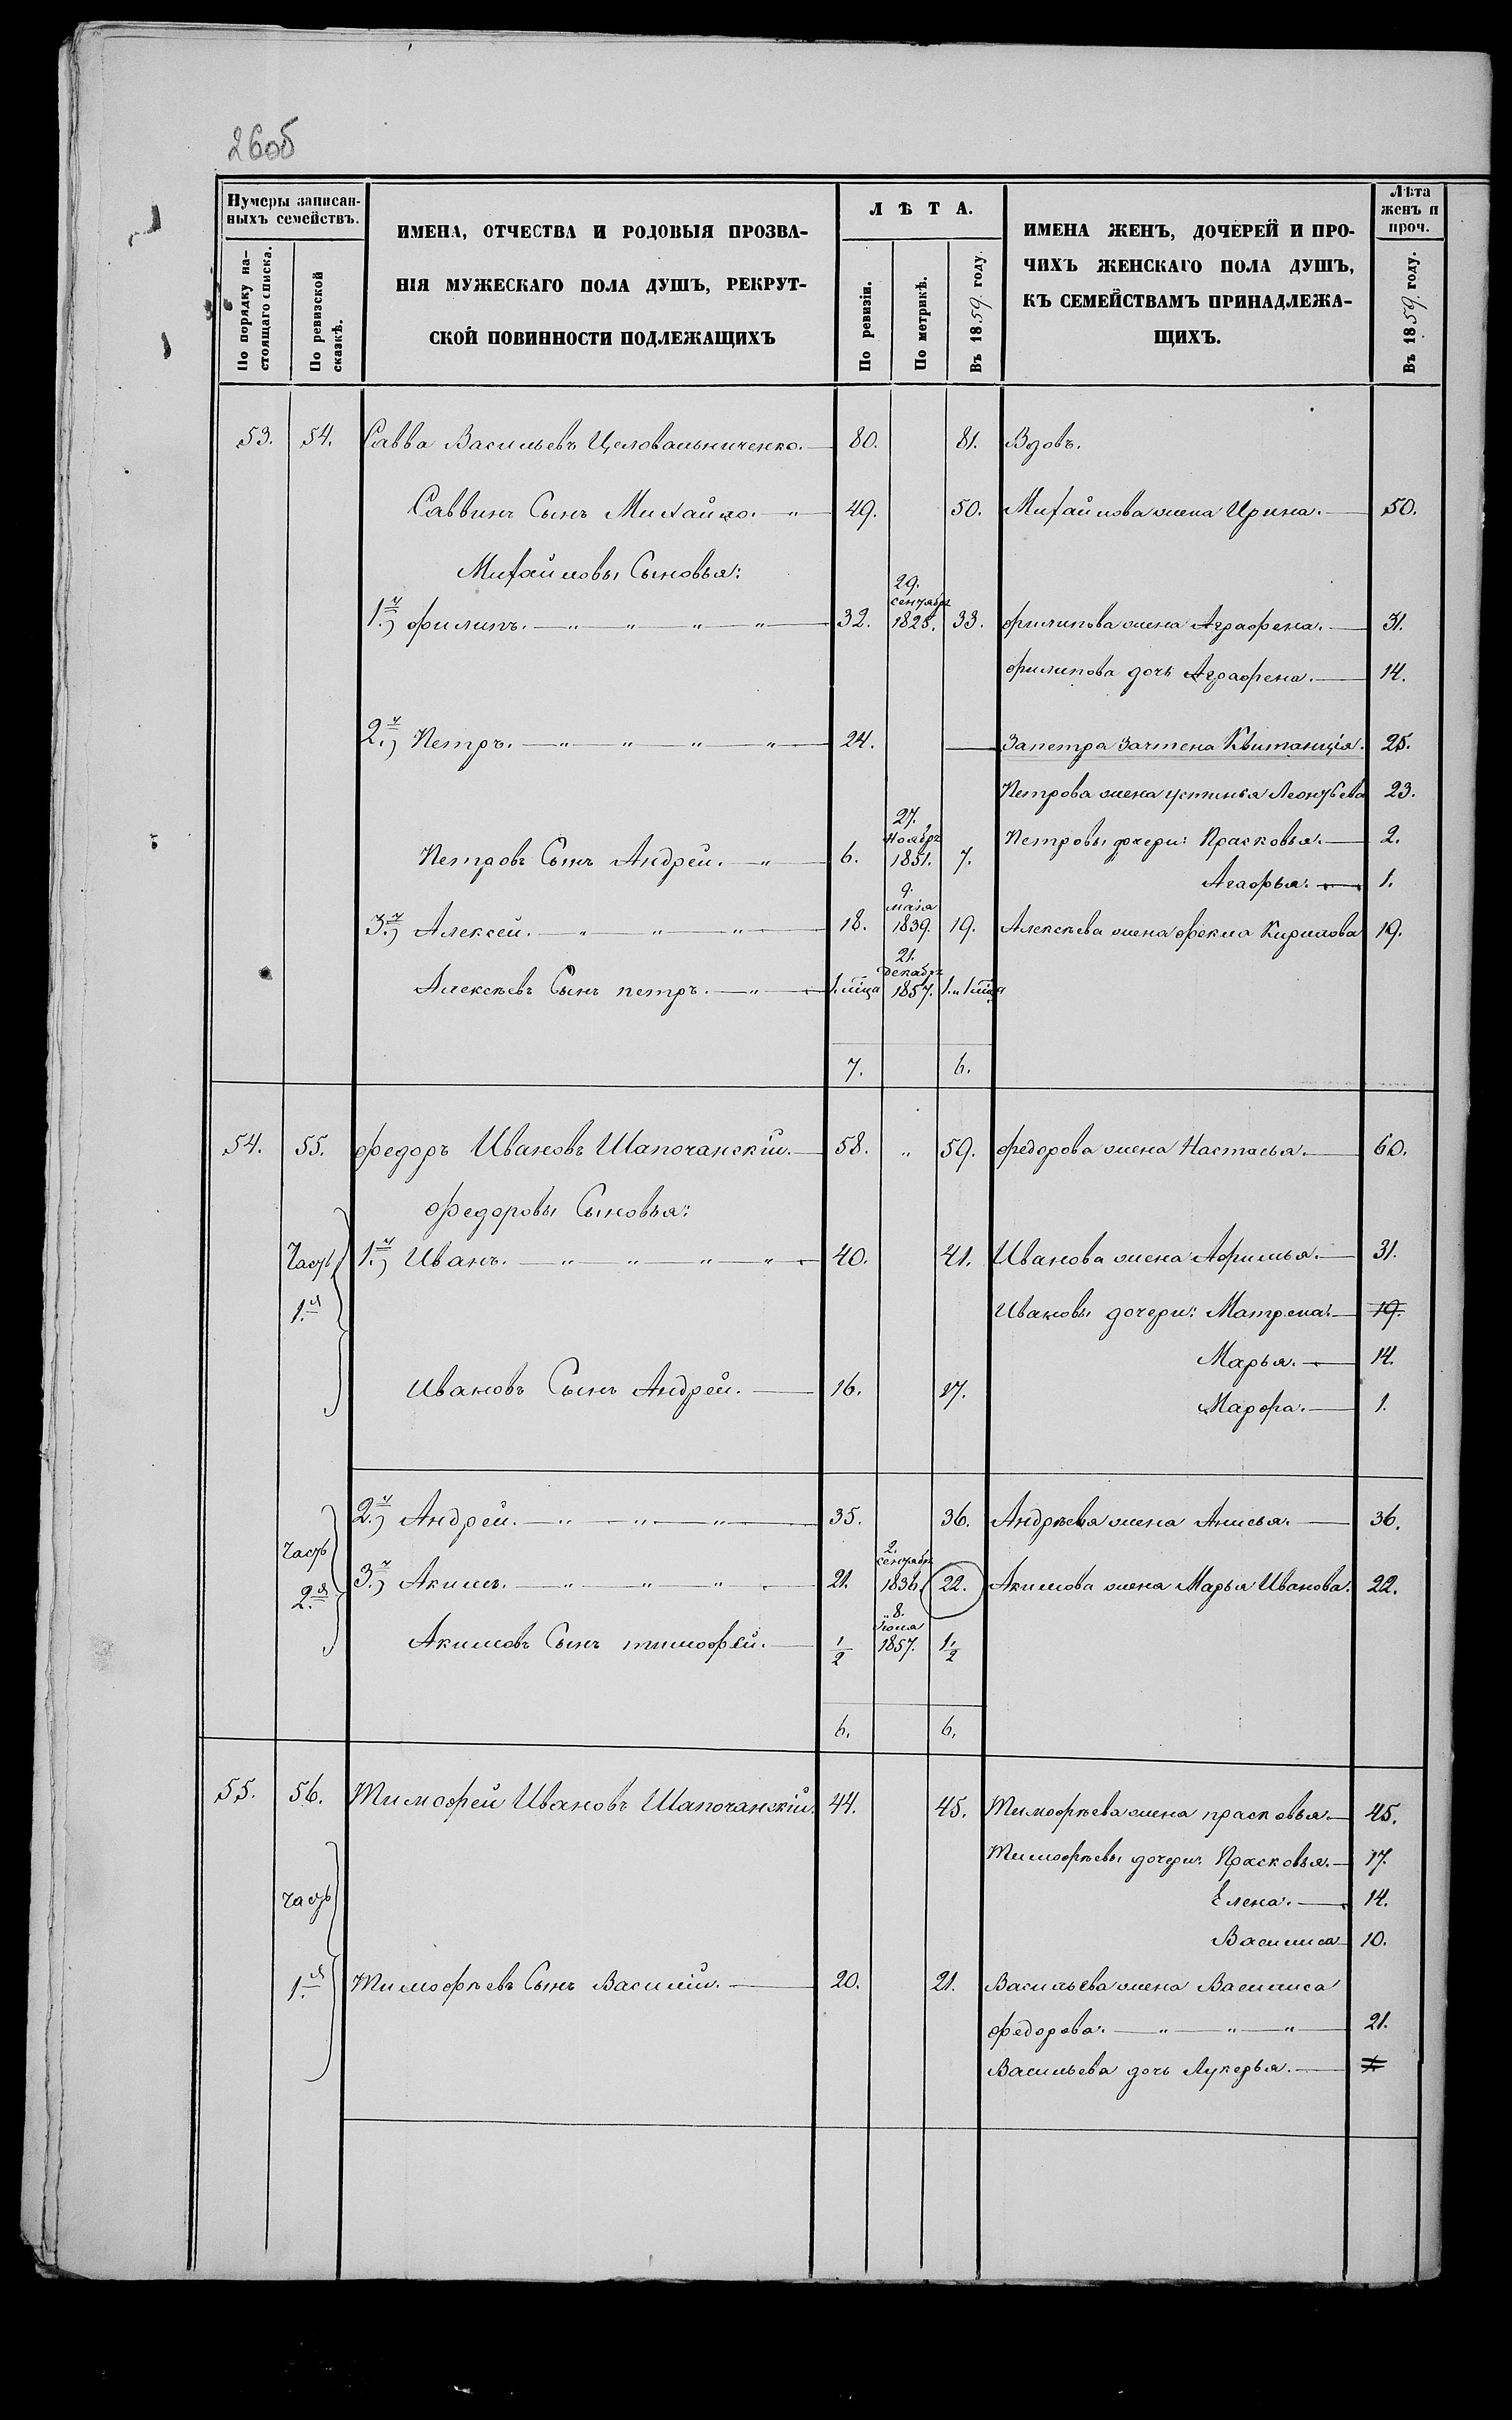 260б
Нумеры записан-
ныхъ семействъ.
По порядку на-
стоящаго списка.
По ревизской
сказкѣ.
ИМЕНА, ОТЧЕСТВА И РОДОВЫЯ ПРОЗВА-
НІЯ МУЖЕСКАГО ПОЛА ДУШЪ, РЕКРУТ-
СКОЙ ПОВИННОСТИ ПОДЛЕЖАЩИХЪ
ЛѢТА.
По ревизіи.
По метрикѣ.
Въ 1859 году.
ИМЕНА ЖЕНЪ, ДОЧЕРЕЙ И ПРО-
ЧИХЪ ЖЕНСКАГО ПОЛА ДУШЪ,
КЪ СЕМЕЙСТВАМЪ ПРИНАДЛЕЖА-
ЩИХЪ.
Лѣта
женъ и
проч.
Въ 1859 году.
53. 54. Савва Васильевъ Целовальниченко. 80. 81. Вдовъ.
Саввинъ Сынъ Михайло. 49. 50. Михайлова жена Ирина. 50.
Михайловы Сыновья:
1.й Филипъ. 32. 29. Сентября 1828. 33. Филипова жена Аграфена. 31.
Филипова дочь Аграфена. 14.
2.й Петръ. 24. — За петра Зачтена Квитанція. 25.
Петрова жена Устинья Леонтьева 23.
Петровы дочери: Прасковья. 2.
Петровъ Сынъ Андрей. 6. 27. Ноября 1851. 7.
Агафья. 1.
3.й Алексей. 18. 9. маія 1839. 19. Алексѣева жена Фекла Кирилова 19.
Алексѣевъ Сынъ петръ. 1. мца 21. Декабря 1857. 1. и 1 мца
7. 6.
54. 55. Федоръ Ивановъ Шапочанскій. 58. " 59. Федорова жена Настасья. 60.
Федоровы Сыновья:
Часть 1.я
1.й Иванъ. 40. 41. Иванова жена Афимья. 31.
Ивановы дочери: Матрена. 19.
Марья. 14.
Ивановъ Сынъ Андрей. 16. 17.
Марфа. 1.
Часть 2.я
2.й Андрей. 35. 36. Андрѣева жена Анисья. 36.
3.й Акимъ. 21. 2. Сентября 1836. 22. Акимова жена Марья Иванова. 22.
Акимовъ Сынъ тимофей. 1/2 8. Іюня 1857. 1 1/2
6. 6.
55. 56. Тимофей Ивановъ Шапочанскій. 44. 45. Тимофѣева жена прасковья. 45.
Тимофѣевы дочери: Прасковья. 17.
Часть 1.я
Елена. 14.
Василиса 10.
Тимофѣевъ Сынъ Василій. 20. 21. Васильева жена Василиса
Федорова. 21.
Васильева дочь Лукерья.